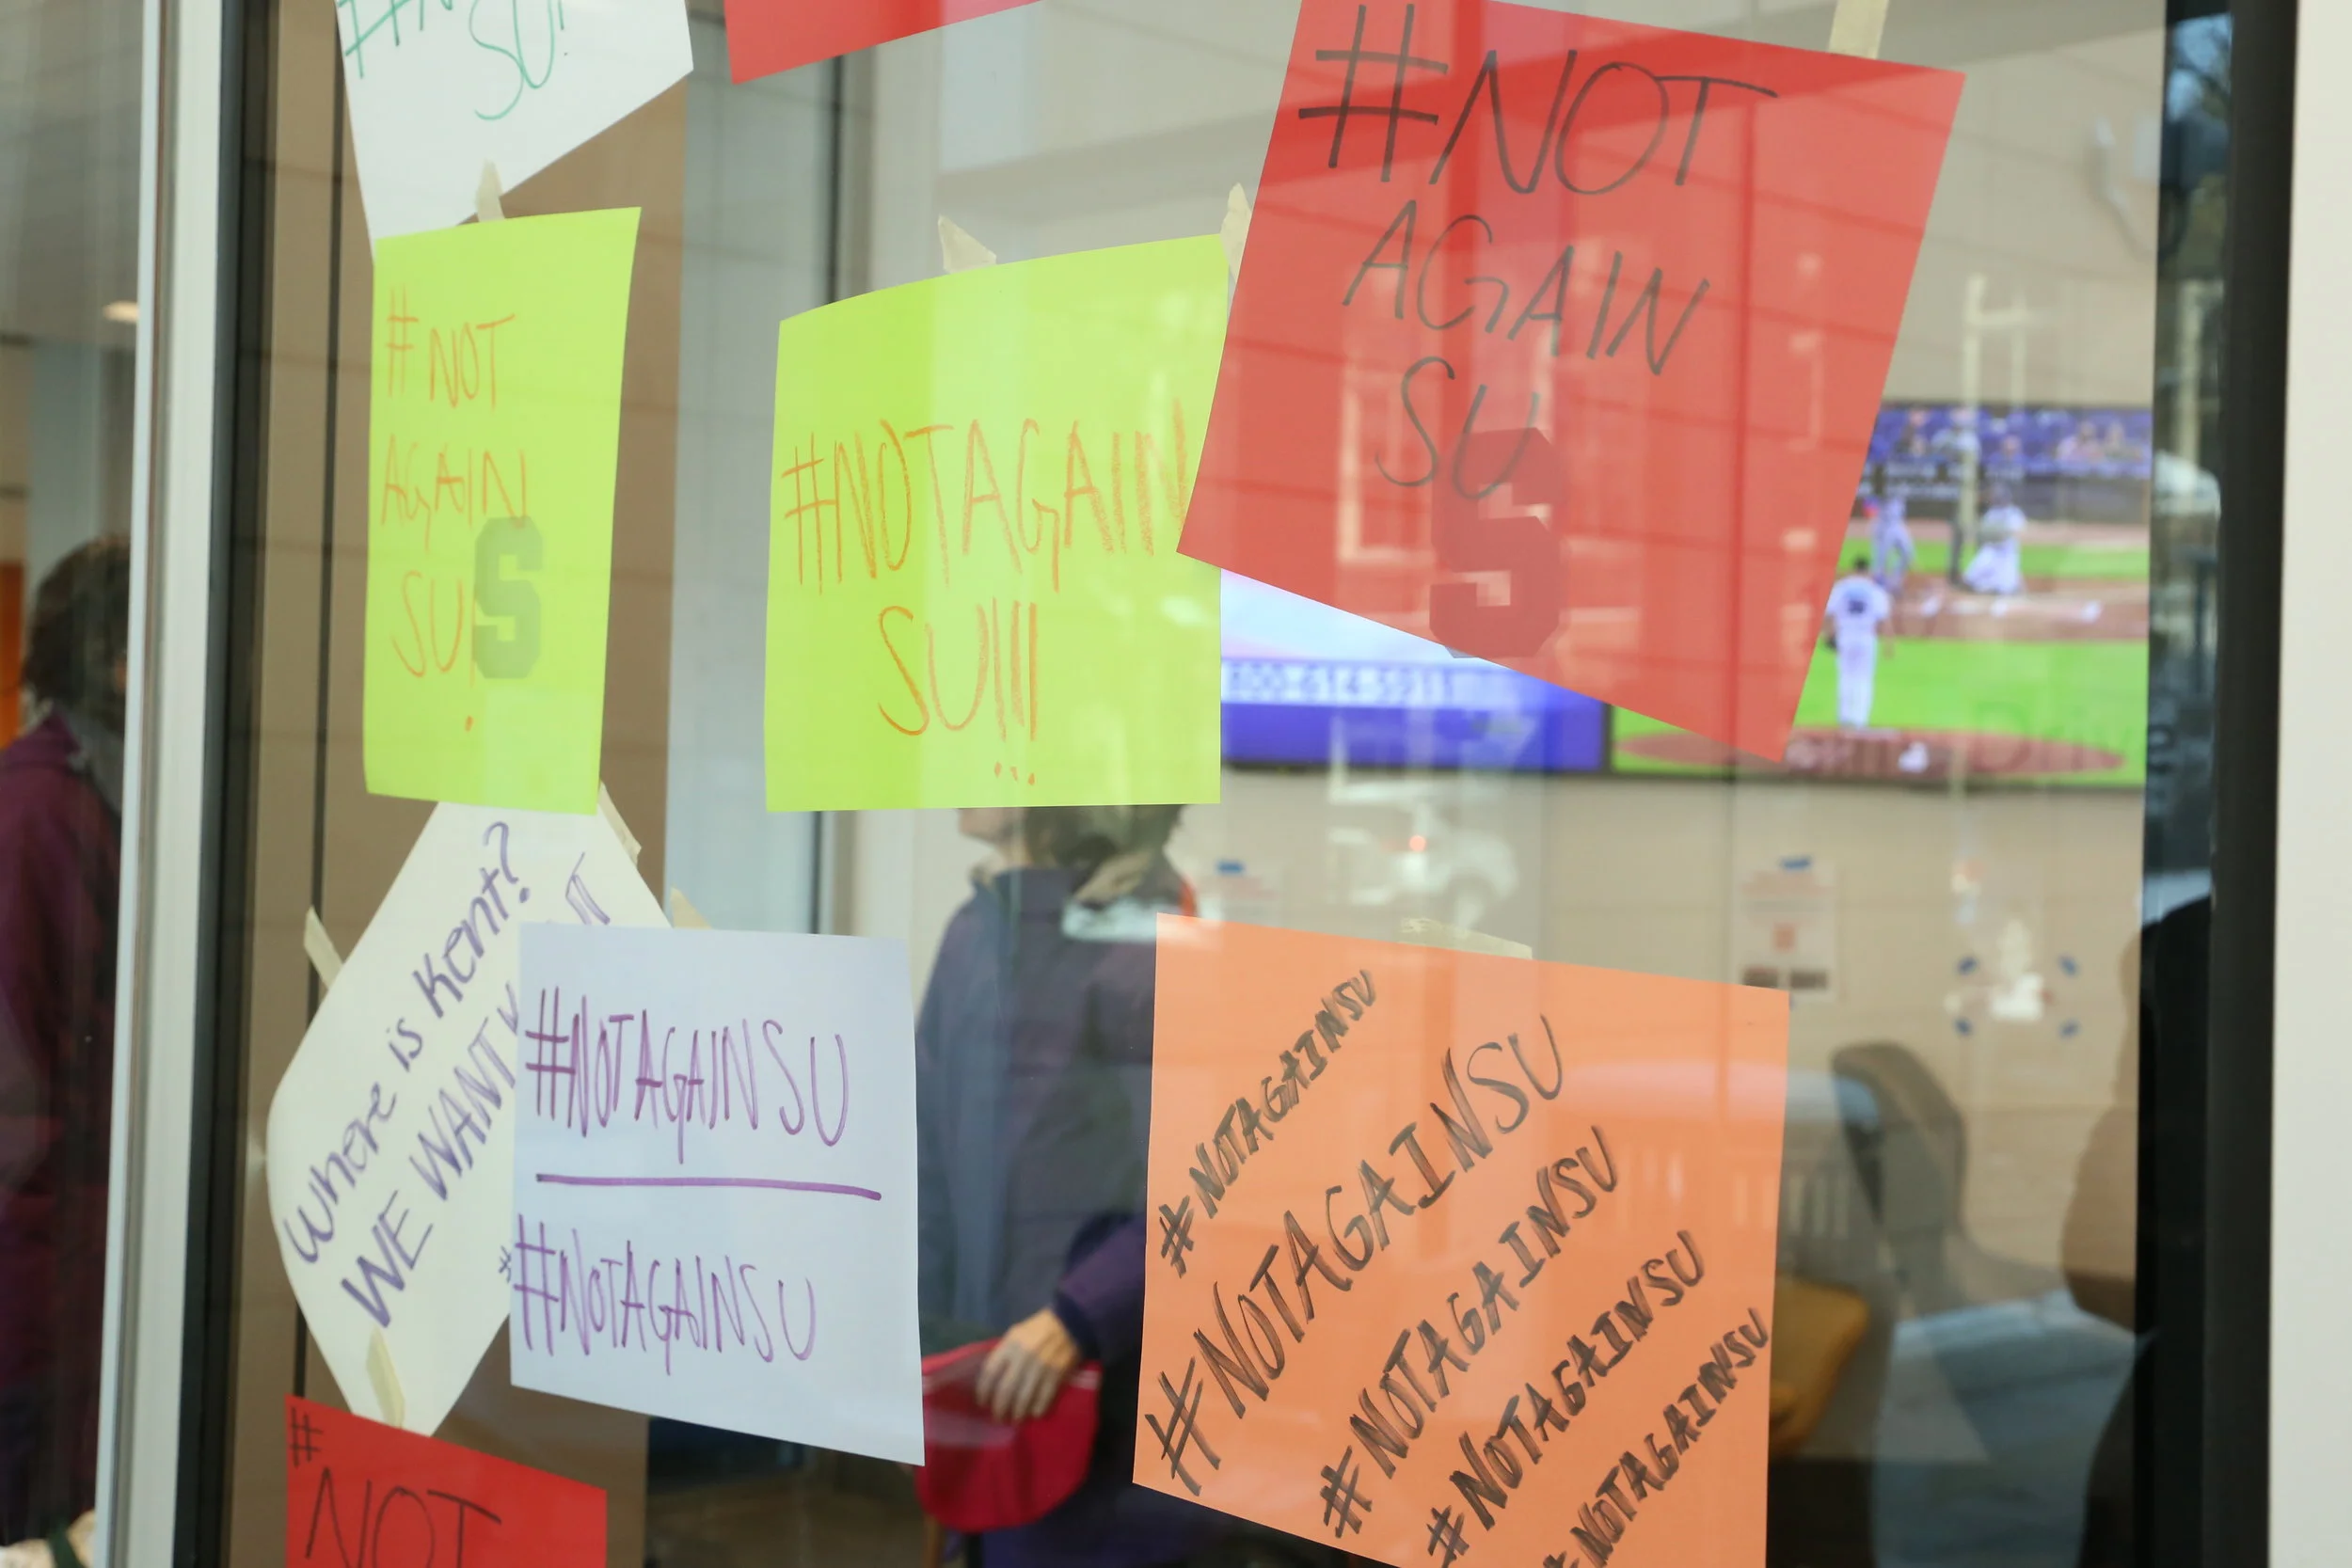 SU!
#NOT
AGAIN
SU
#NOT
AGAIN
SU!
S
#NOTAGAIN
SU!!!
S
800-614-5911
Where is Kent?
WE WANT
#NOTAGAINSU
#NOTAGAINSU
#NOTAGAINSU
#NOTAGAINSU
#NOTAGAINSU
#NOTAGAINSU
#NOTAGAINSU
#
NOT